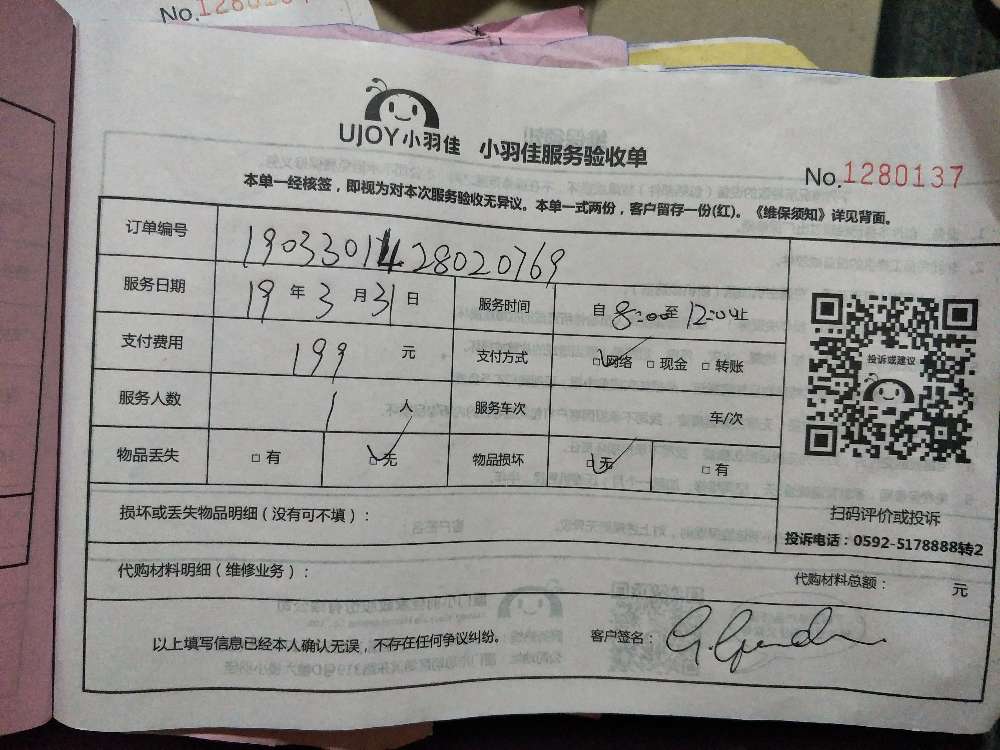 No.1280
UJOY小羽佳 小羽佳服务验收单
No.1280137
本单一经核签，即视为对本次服务验收无异议。本单一式两份，客户留存一份(红)。《维保须知》详见背面。
订单编号 1903301428020769
服务日期 19 年 3 月 31 日 服务时间 自 8:00 至 12:00 止
支付费用 199 元 支付方式 □网络 □现金 □转账
服务人数 1 人 服务车次 车/次
物品丢失 □有 □无 物品损坏 □无 □有
投诉或建议
扫码评价或投诉
投诉电话：0592-5178888转2
损坏或丢失物品明细（没有可不填）：
代购材料明细（维修业务）： 代购材料总额： 元
以上填写信息已经本人确认无误，不存在任何争议纠纷。 客户签名：